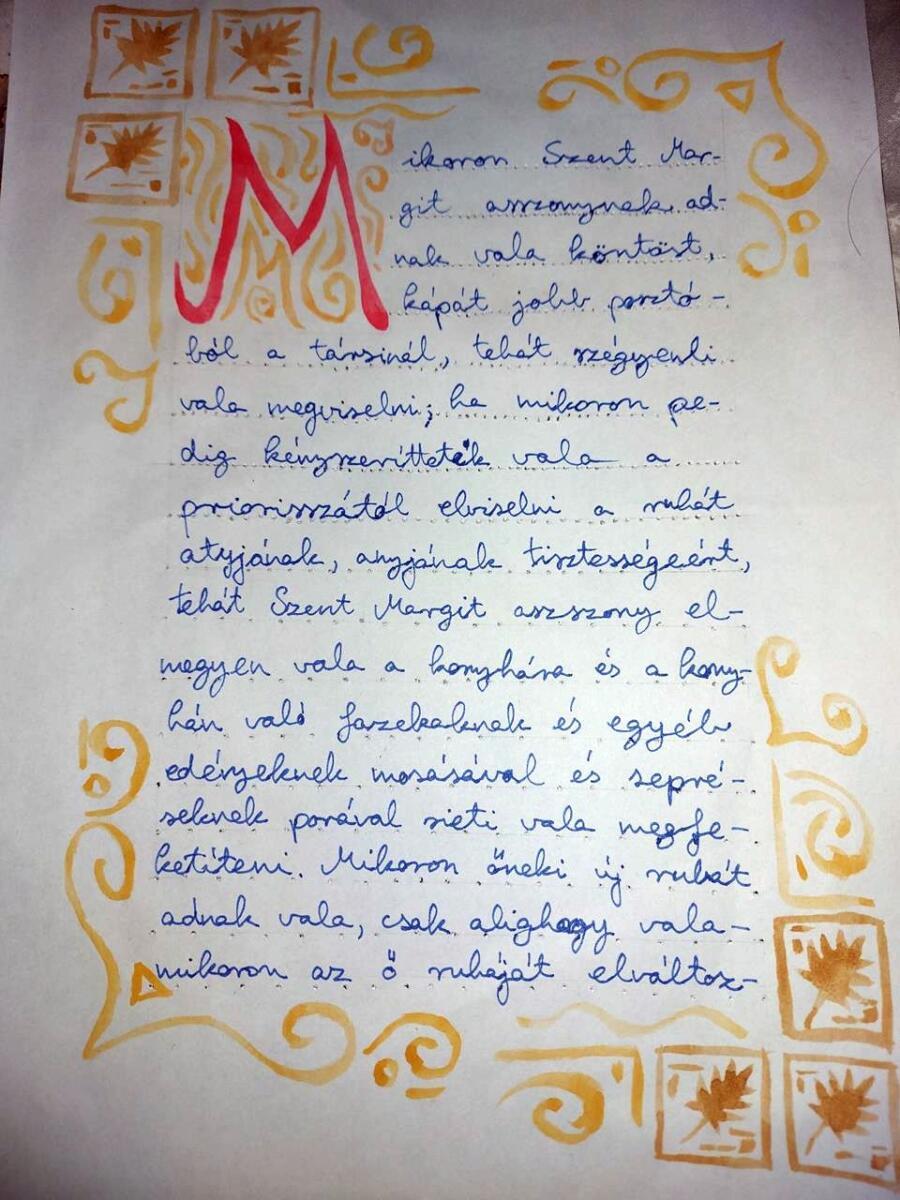 Mikoron Szent Mar-
git asszonynak ad-
nak vala köntöst,
kápát jobb posztó-
ból a társinál, tehát szégyenli
vala megviselni; ha mikoron pe-
dig kényszeríttetik vala a
priorisszától elviselni a ruhát
atyjának, anyjának tisztességeért,
tehát Szent Margit aszszony el-
megyen vala a konyhára és a kony-
hán való fazekaknak és egyéb
edényeknek mosásával és sepré-
seknek porával sieti vala megfe-
ketíteni. Mikoron őneki új ruhát
adnak vala, csak alighogy vala-
mikoron az ő ruháját elváltoz-